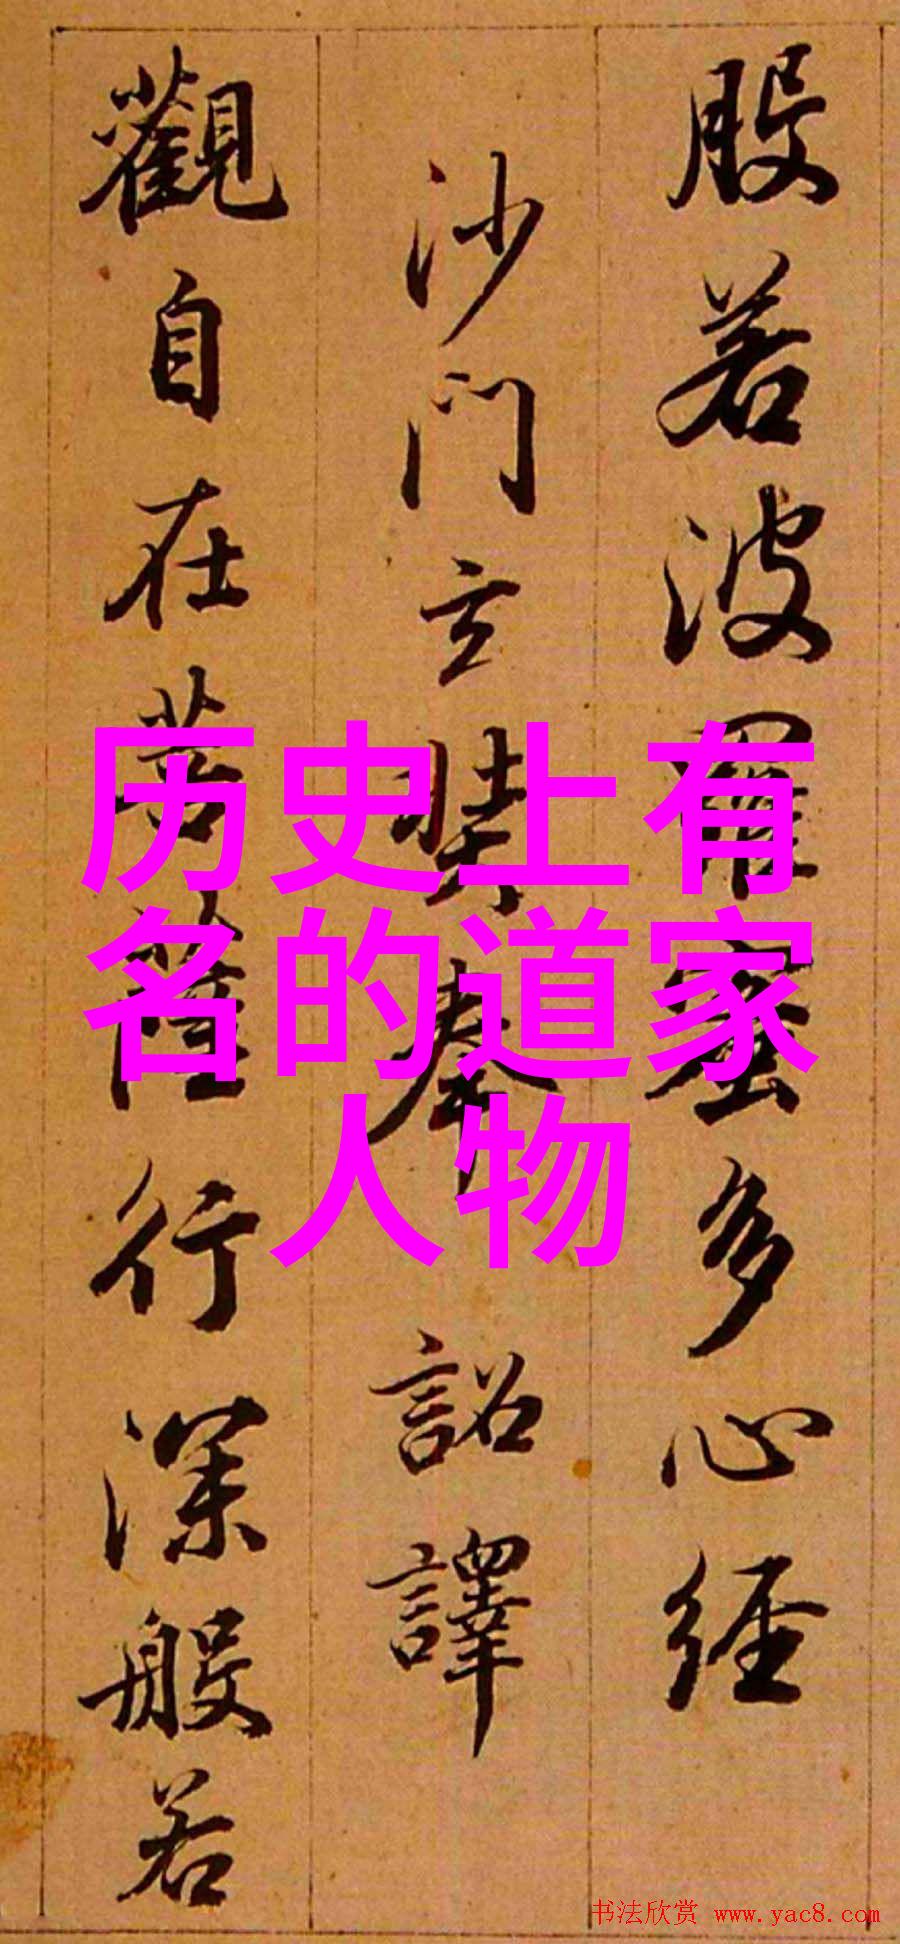 般若波羅蜜多心經
沙門玄奘奉 詔譯
觀自在菩薩行深般若
历史上有
名的道家
人物
书法欣赏 www.yac8.com